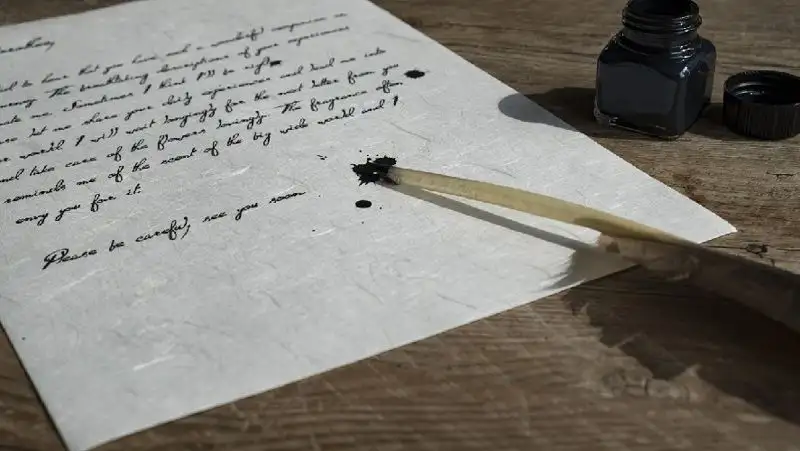 to hear that you have such a wonderful
The breathtaking descriptions of your experiences
me. Sometimes I think I'll be right
let me share your daily experiences and send me
world I will wait longingly for the next letter from you
take care of the flowers lovingly. The fragrance often
reminds me of the scent of the big wide world and I
envy you for it.
Please be careful, see you soon